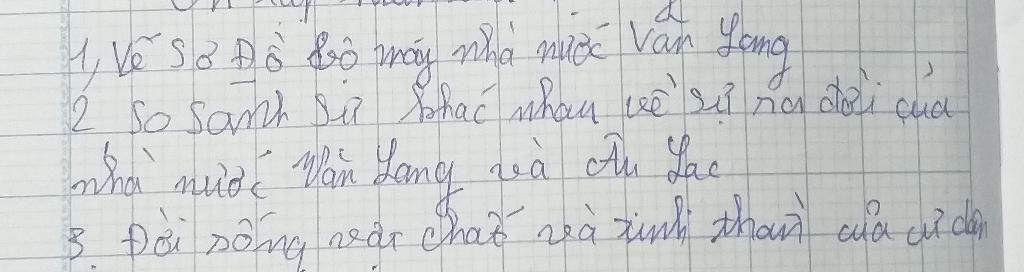 1, Vẽ Sơ Đồ Bộ máy nhà nước Văn Lang
2 So Sanh Sự khác nhau về sự ra đời của
nhà nước Văn Lang và Âu Lạc
3. Đời sống vật chất và tinh thần của cư dân